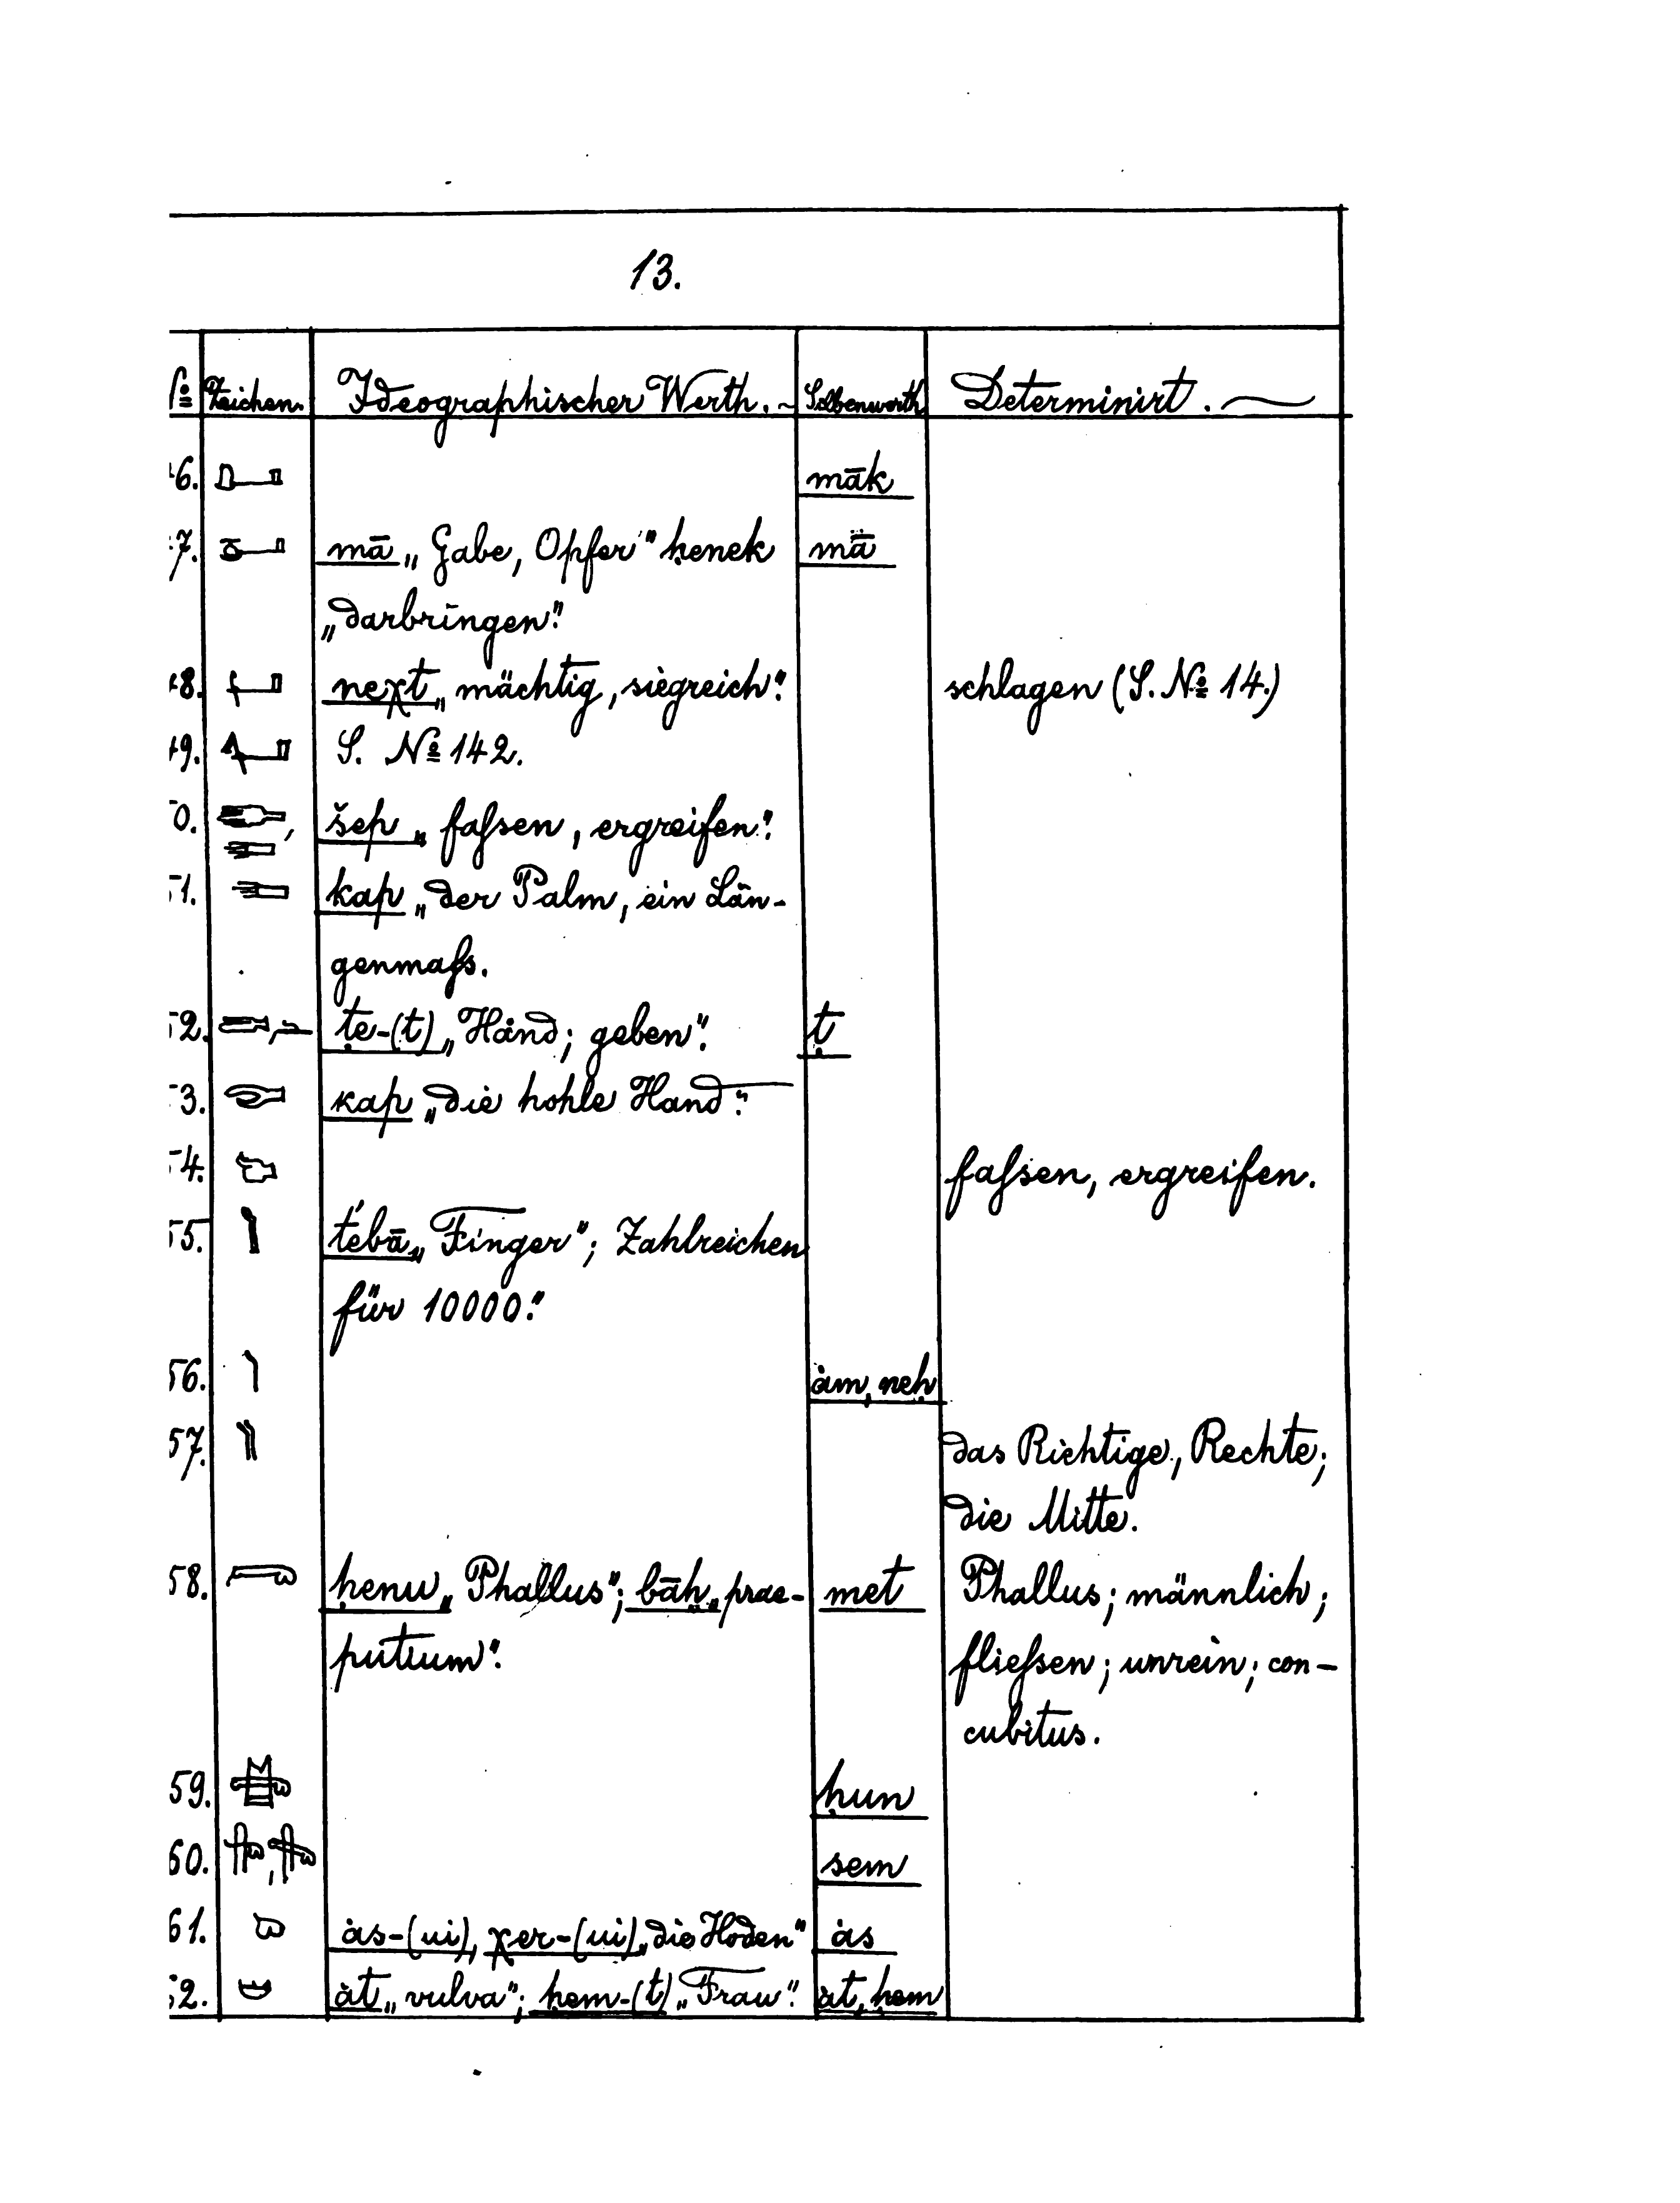 13.
№ Zeichen. Ideographischer Werth. Silbenwerth Determinirt.
46. māk
47. mā „Gabe, Opfer" ḥenek mā
„darbringen".
48. neχt „mächtig, siegreich". schlagen (S. № 14.)
49. S. № 142.
50. šep „faſsen, ergreifen".
51. kap „der Palm, ein Län-
genmaſs.
52. ṭe-(t) „Hand; geben". ṭ
53. kap „die hohle Hand".
54. faſsen, ergreifen.
55. t'ebā „Finger"; Zahlzeichen
für 10000."
56. àm, neḥ
57. das Richtige, Rechte;
die Mitte.
58. ḥenu „Phallus"; bāḥ „prae- met Phallus; männlich;
putium". flieſsen; unrein; con-
cubitus.
59. ḥun
60. sem
61. às-(ui), χer-(ui) „die Hoden" às
62. àt „vulva"; ḥem-(t) „Frau". àt, ḥem